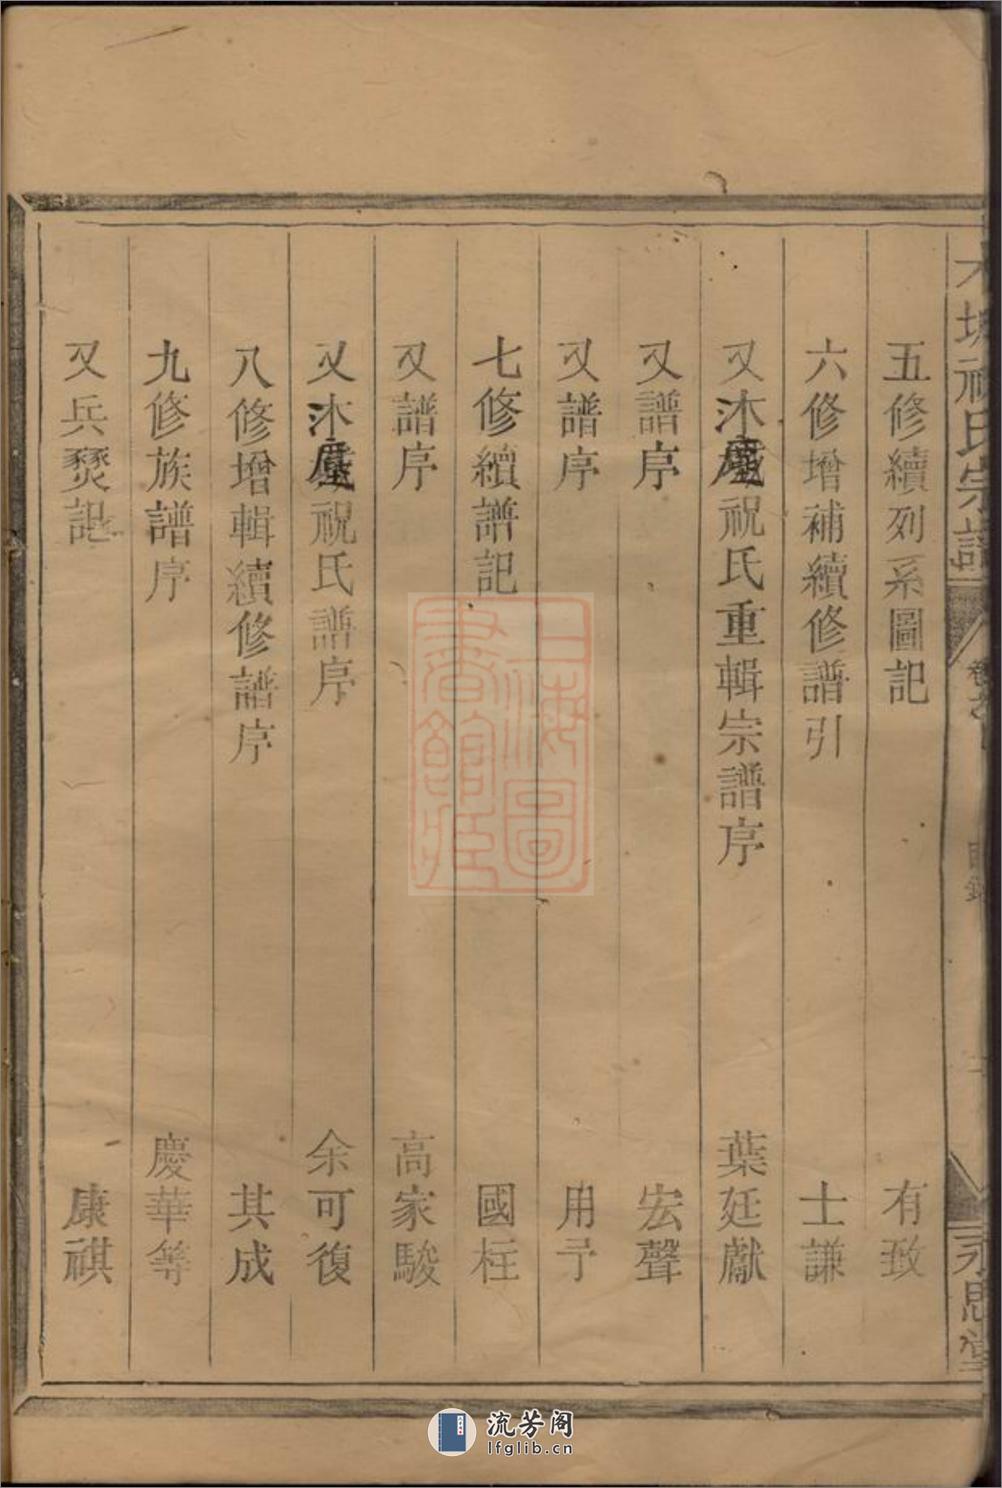 五修續列系圖記 有致
六修增補續修譜引 士謙
又沐塵祝氏重輯宗譜序 葉廷獻
又譜序 宏聲
又譜序 用予
七修續譜記 國柱
又譜序 高家駿
又沐塵祝氏譜序 余可復
八修增輯續修譜序 其成
九修族譜序 慶華等
又兵燹記 康祺
祝氏宗譜
目錄
永思堂
上海圖書館藏
流芳阁
lfglib.cn